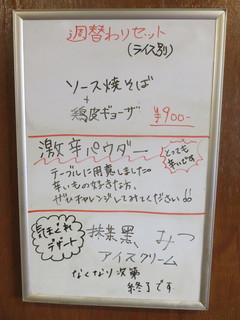 週替わりセット
(ライス別)
ソース焼そば
+
鶏皮ギョーザ ¥900-
激辛パウダー
とっても
辛いです
テーブルに用意しました。
辛いもの好きな方、
ぜひチャレンジしてみてください!!
気まぐれ
デザート
抹茶黒みつ
アイスクリーム
なくなり次第
終了です